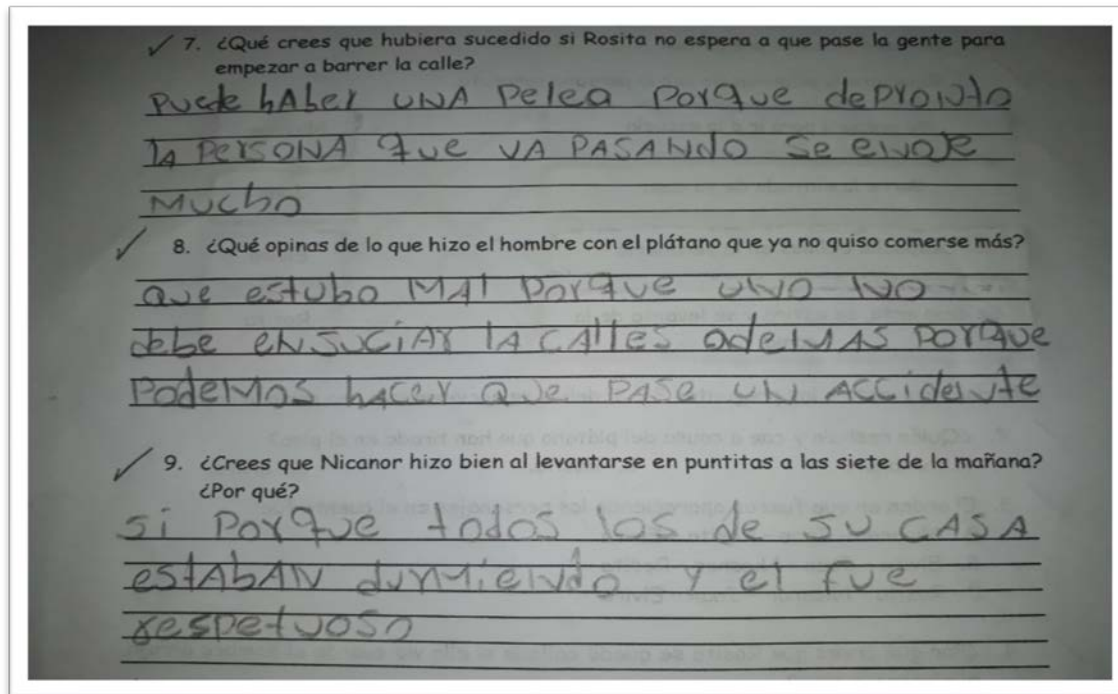 7. ¿Qué crees que hubiera sucedido si Rosita no espera a que pase la gente para
empezar a barrer la calle?
Puede hAber UNA Pelea Porque deProNto
lA PersONA que VA PASANdo Se eNoje
Mucho
8. ¿Qué opinas de lo que hizo el hombre con el plátano que ya no quiso comerse más?
Que estubo MAl Porque UNO NO
debe eNSUCiAr lA CAlles AdeMAS PorQue
PodeMos hAcer Que PASe UN ACCideNte
9. ¿Crees que Nicanor hizo bien al levantarse en puntitas a las siete de la mañana?
¿Por qué?
Si PorQue todos los de SU CASA
estAbAN durMieNdo y el fue
respetuoso